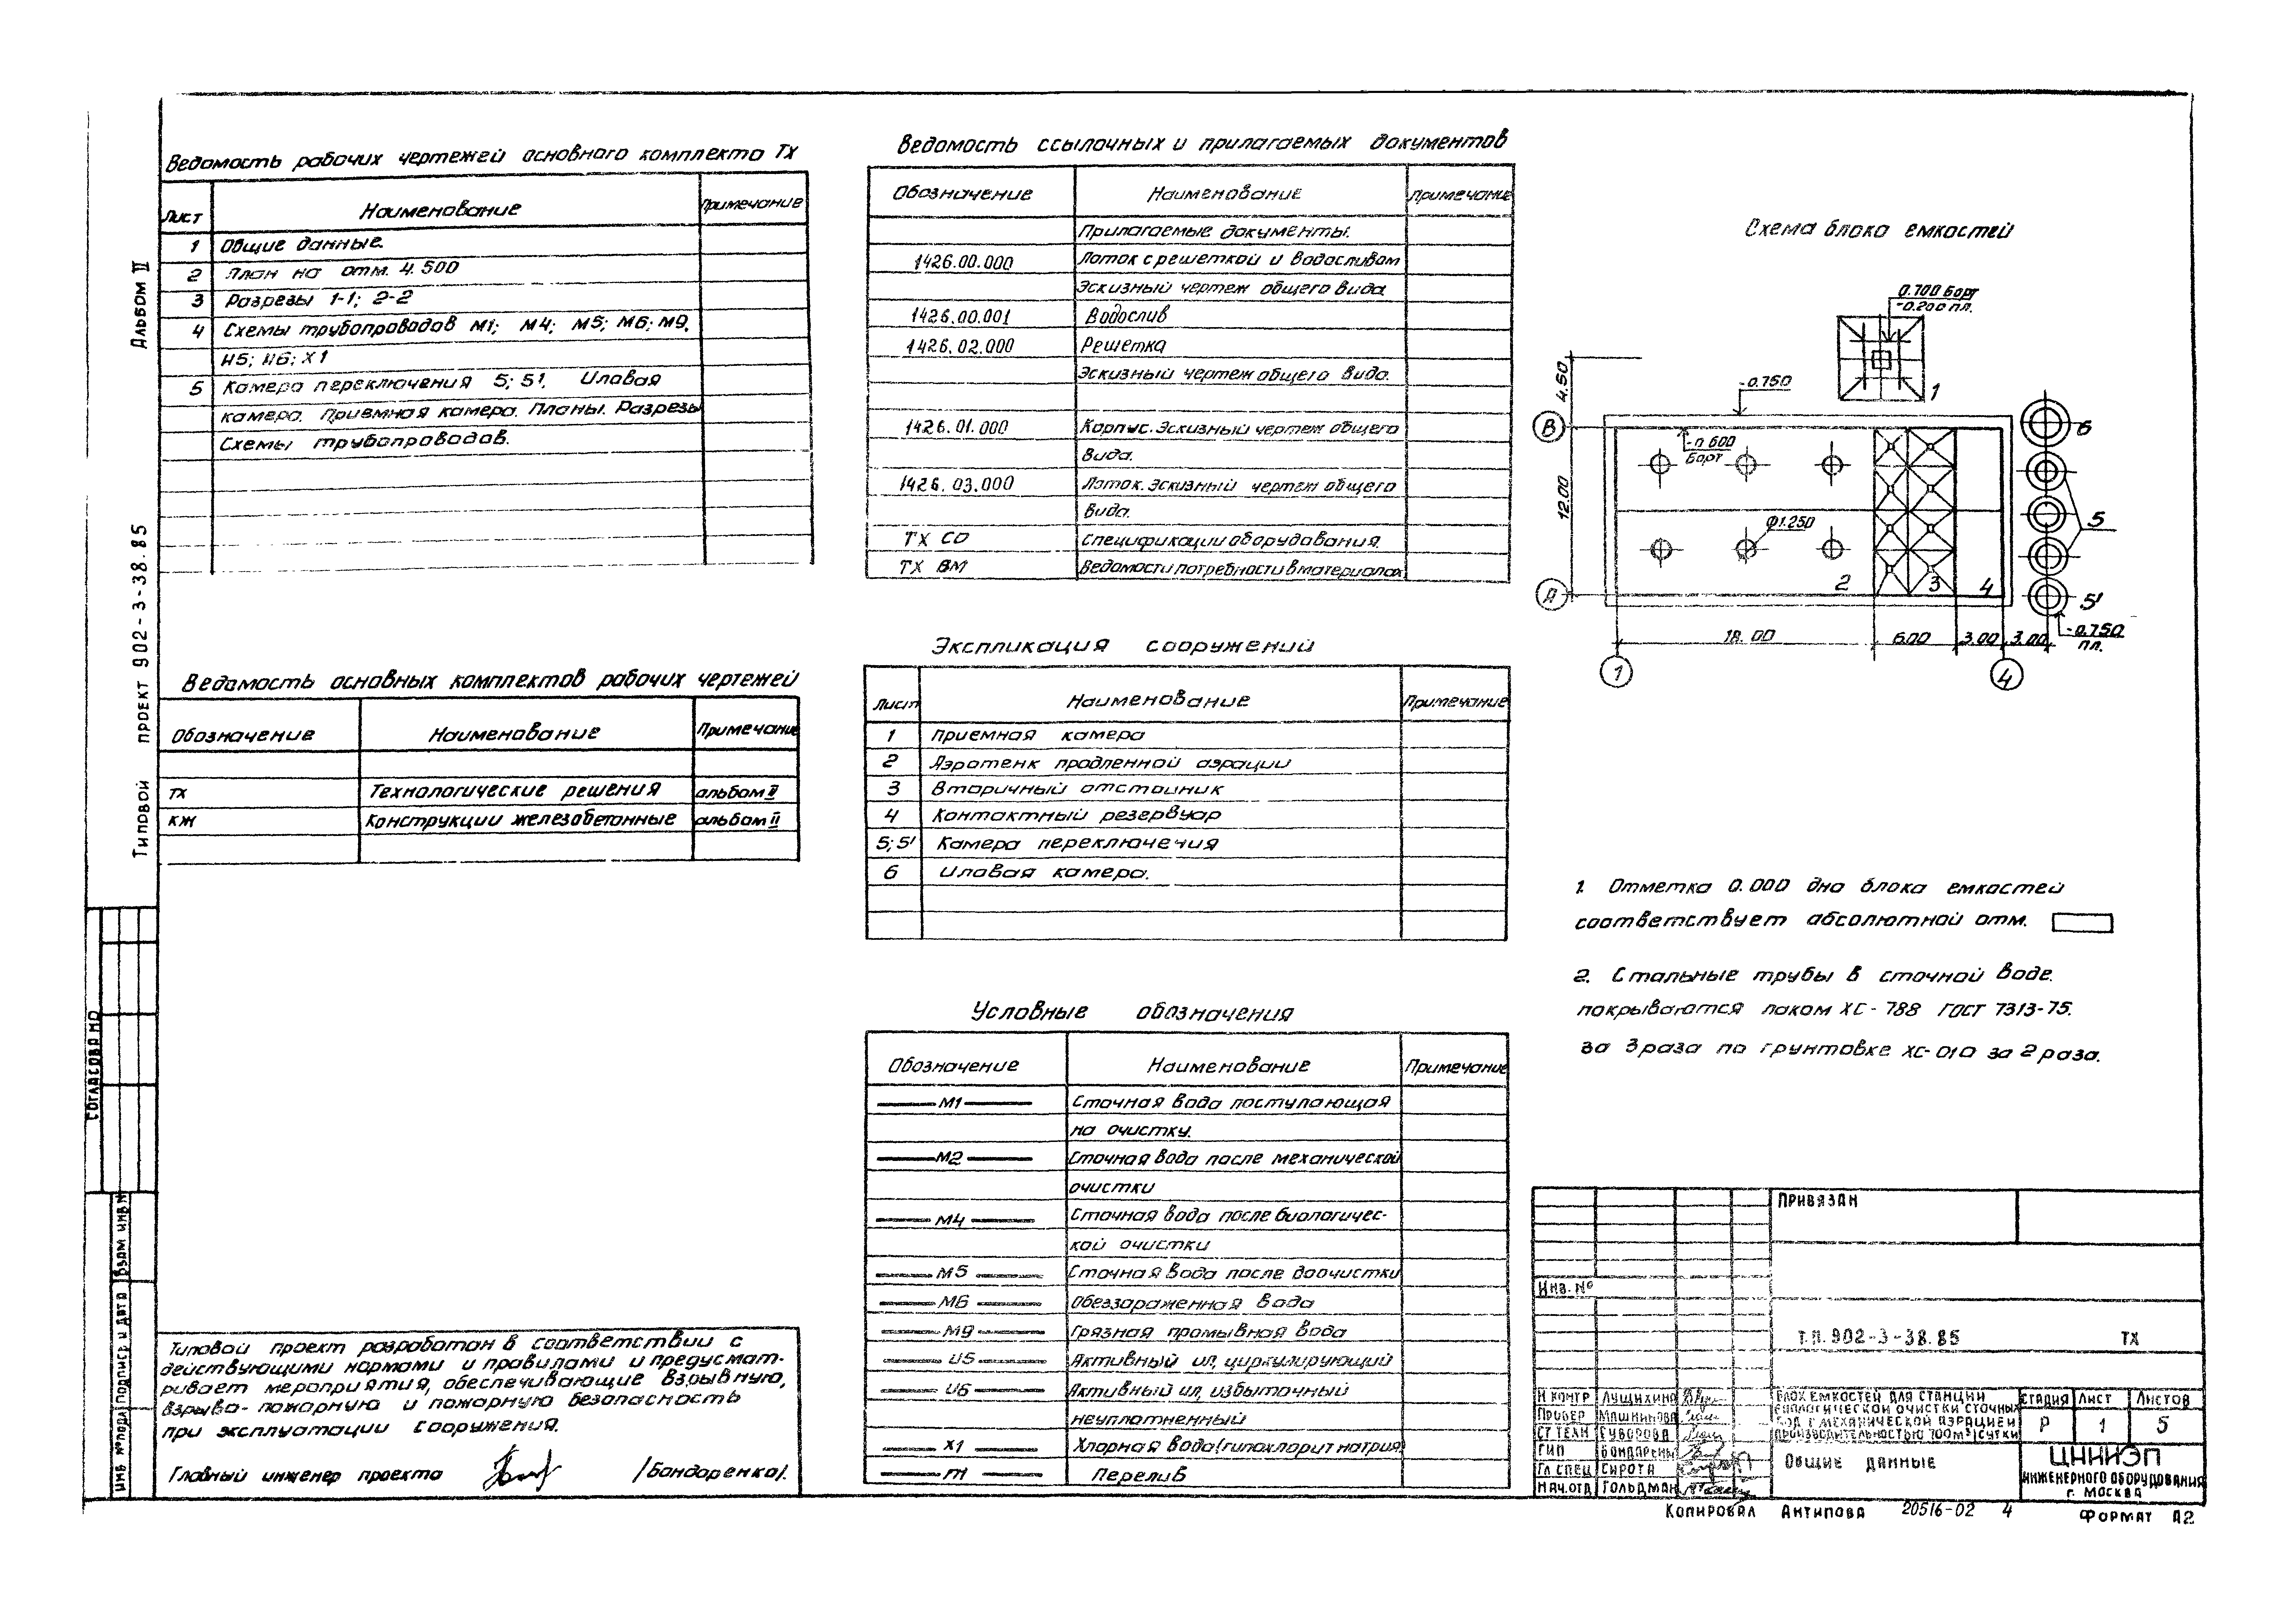 Альбом II
Типовой проект 902-3-38.85
Согласовано
Инв № подл
Подпись и дата
Взам инв N
Ведомость рабочих чертежей основного комплекта ТХ
Лист Наименование Примечание
1 Общие данные.
2 План на отм. 4.500
3 Разрезы 1-1; 2-2
4 Схемы трубопроводов М1; М4; М5; М6; М9,
И5; И6; Х1
5 Камера переключения 5; 5', Иловая
камера. Приемная камера. Планы. Разрезы
Схемы трубопроводов.
Ведомость основных комплектов рабочих чертежей
Обозначение Наименование Примечание
ТХ Технологические решения альбом II
КЖ Конструкции железобетонные альбом II
Типовой проект разработан в соответствии с
действующими нормами и правилами и предусмат-
ривает мероприятия, обеспечивающие взрывную,
взрыво-пожарную и пожарную безопасность
при эксплуатации сооружения.
Главный инженер проекта /Бондаренко/.
Ведомость ссылочных и прилагаемых документов
Обозначение Наименование Примечание
Прилагаемые документы.
1426.00.000 Лоток с решеткой и водосливом
Эскизный чертеж общего вида
1426.00.001 Водослив
1426.02.000 Решетка
Эскизный чертеж общего вида.
1426.01.000 Корпус. Эскизный чертеж общего
вида.
1426.03.000 Лоток. Эскизный чертеж общего
вида.
ТХ СО Спецификации оборудования.
ТХ ВМ Ведомости потребности в материалах
Экспликация сооружений
Лист Наименование Примечание
1 Приемная камера
2 Аэротенк продленной аэрации
3 Вторичный отстойник
4 Контактный резервуар
5; 5' Камера переключения
6 Иловая камера.
Условные обозначения
Обозначение Наименование Примечание
М1 Сточная вода поступающая
на очистку.
М2 Сточная вода после механической
очистки
М4 Сточная вода после биологичес-
кой очистки
М5 Сточная вода после доочистки
М6 Обеззараженная вода
М9 Грязная промывная вода
И5 Активный ил, циркулирующий
И6 Активный ил, избыточный
неуплотненный
Х1 Хлорная вода (гипохлорит натрия)
П Перелив
Схема блока емкостей
0.700 Борт
-0.200 пл.
1
-0.750
4.50
В
-0.600
Борт
6
12.00
Ф1.250
5
А
2 3 4
5'
18.00 6.00 3.00 3.00
-0.750
пл.
1 4
1. Отметка 0.000 дна блока емкостей
соответствует абсолютной отм.
2. Стальные трубы в сточной воде.
покрываются лаком ХС-788 ГОСТ 7313-75.
за 3 раза по грунтовке ХС-010 за 2 раза.
Привязан
Инв. №
Т.П. 902-3-38.85 ТХ
Н контр Лущихина
Провер Машнинова
Ст техн Суворова
ГИП Бондаренко
Гл спец Сирота
Нач. отд Гольдман
Блок емкостей для станции
биологической очистки сточных
вод с механической аэрацией
производительностью 700 м³/сутки
Стадия Лист Листов
Р 1 5
Общие данные
ЦНИИЭП
инженерного оборудования
г. Москва
Копировал Антипова 20516-02 4 Формат А2